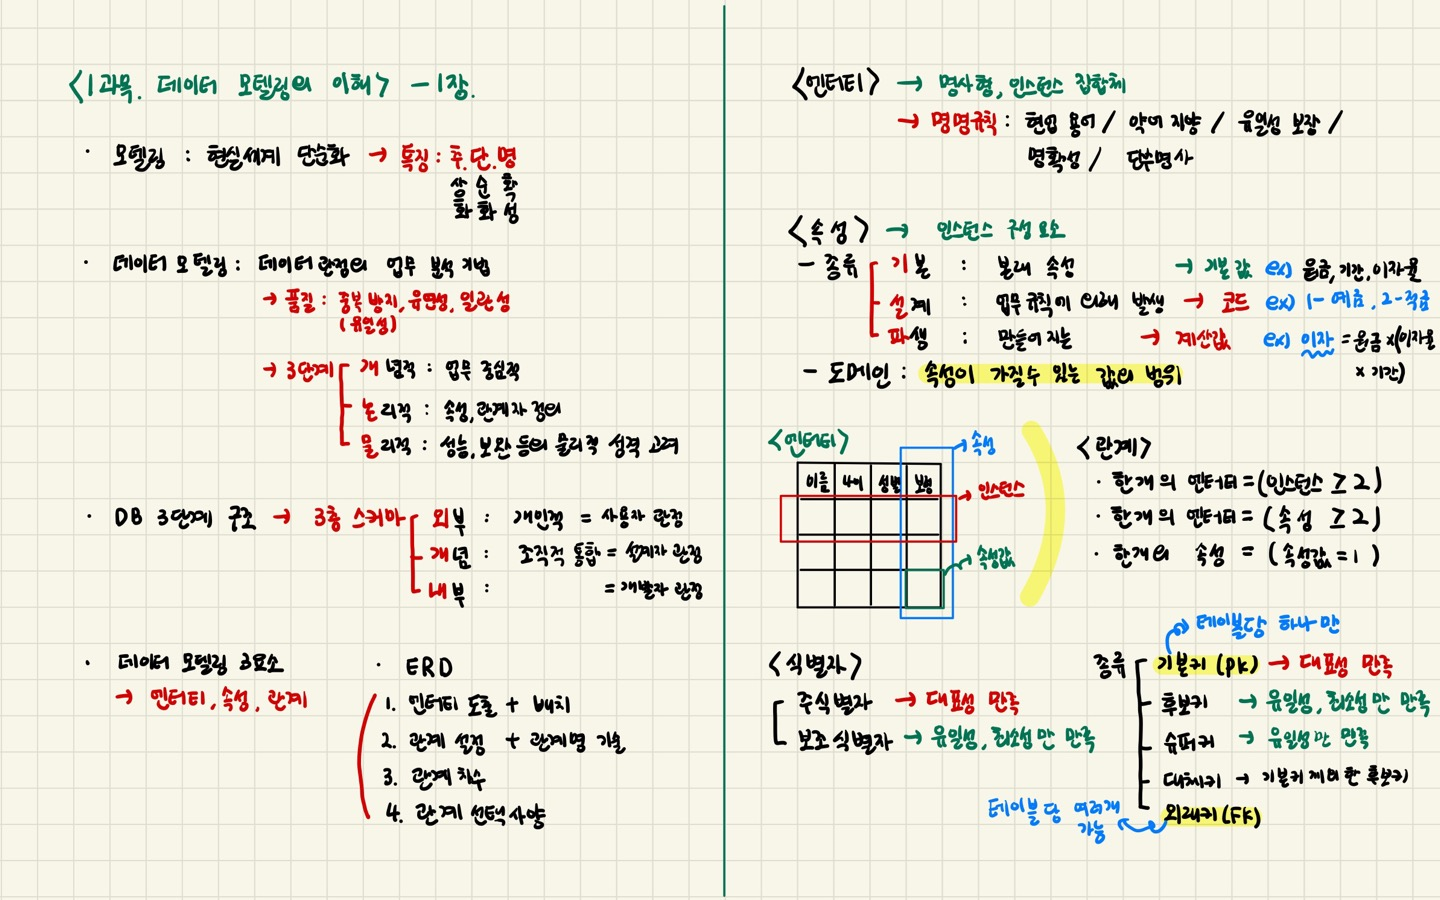 <1과목. 데이터 모델링의 이해> - 1장.
· 모델링 : 현실세계 단순화 → 특징 : 추.단.명
상 순 확
화 화 성
· 데이터 모델링 : 데이터 관점의 업무 분석 기법
→ 품질 : 중복 방지, 유연성, 일관성
(유일성)
→ 3단계
개념적 : 업무 중심적
논리적 : 속성, 관계 자 정의
물리적 : 성능, 보안 등의 물리적 성격 고려
· DB 3단계 구조 → 3층 스키마
외부 : 개인적 = 사용자 관점
개념 : 조직적 통합 = 설계자 관점
내부 : = 개발자 관점
· 데이터 모델링 3요소
→ 엔터티, 속성, 관계
· ERD
1. 엔터티 도출 + 배치
2. 관계 설정 + 관계명 기술
3. 관계 차수
4. 관계 선택사양
<엔터티> → 명사형, 인스턴스 집합체
→ 명명규칙 : 현업 용어 / 약어 지양 / 유일성 보장 /
명확성 / 단수명사
<속성> → 인스턴스 구성 요소
- 종류
기본 : 본래 속성 → 기본값 ex) 원금, 기간, 이자율
설계 : 업무규칙에 의해 발생 → 코드 ex) 1-예금, 2-적금
파생 : 만들어지는 → 계산값 ex) 이자 = 원금 x (이자율
x 기간)
- 도메인 : 속성이 가질 수 있는 값의 범위
<엔터티>
→ 속성
이름 나이 성별 보명
→ 인스턴스
→ 속성값
<관계>
· 한개의 엔터티 = (인스턴스 ≥ 2)
· 한개의 엔터티 = (속성 ≥ 2)
· 한개의 속성 = (속성값 = 1)
<식별자>
주식별자 → 대표성 만족
보조식별자 → 유일성, 최소성만 만족
→ 테이블당 하나만
종류
기본키 (PK) → 대표성 만족
후보키 → 유일성, 최소성만 만족
슈퍼키 → 유일성만 만족
대체키 → 기본키 제외한 후보키
외래키 (FK)
테이블당 여러개
가능